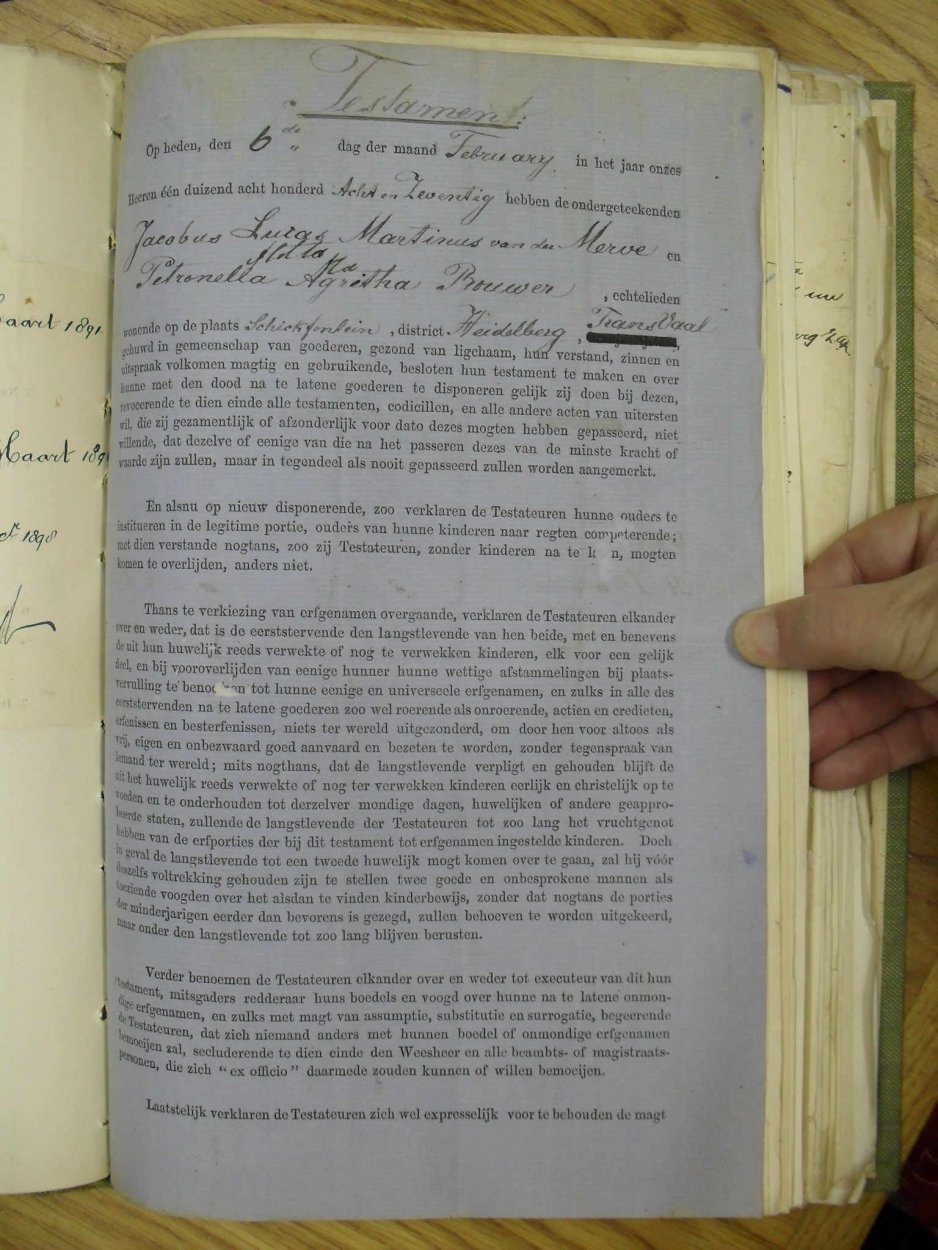 Testament:
Op heden, den 6de dag der maand February in het jaar onzes
Heeren één duizend acht honderd Acht en Zeventig hebben de ondergeteekenden
Jacobus Lucas Martinus van der Merve en
Petronella Agretha Brouwer, echtelieden
wonende op de plaats Schickfontein, district Heidelberg, TransVaal
gehuwd in gemeenschap van goederen, gezond van ligchaam, hun verstand, zinnen en
uitspraak volkomen magtig en gebruikende, besloten hun testament te maken en over
hunne met den dood na te latene goederen te disponeren gelijk zij doen bij dezen,
revocerende te dien einde alle testamenten, codicillen, en alle andere acten van uitersten
wil, die zij gezamentlijk of afzonderlijk voor dato dezes mogten hebben gepasseerd, niet
willende, dat dezelve of eenige van die na het passeren dezes van de minste kracht of
waarde zijn zullen, maar in tegendeel als nooit gepasseerd zullen worden aangemerkt.
En alsnu op nieuw disponerende, zoo verklaren de Testateuren hunne ouders te
institueren in de legitime portie, ouders van hunne kinderen naar regten competerende;
met dien verstande nogtans, zoo zij Testateuren, zonder kinderen na te mogten
komen te overlijden, anders niet.
Thans te verkiezing van erfgenamen overgaande, verklaren de Testateuren elkander
over en weder, dat is de eerststervende den langstlevende van hen beide, met en benevens
de uit hun huwelijk reeds verwekte of nog te verwekken kinderen, elk voor een gelijk
deel, en bij vooroverlijden van eenige hunner hunne wettige afstammelingen bij plaats-
vervulling te benoemen tot hunne eenige en universeele erfgenamen, en zulks in alle des
eerststervenden na te latene goederen zoo wel roerende als onroerende, actien en credieten,
erfenissen en besterfenissen, niets ter wereld uitgezonderd, om door hen voor altoos als
vrij, eigen en onbezwaard goed aanvaard en bezeten te worden, zonder tegenspraak van
iemand ter wereld; mits nogthans, dat de langstlevende verpligt en gehouden blijft de
uit het huwelijk reeds verwekte of nog ter verwekken kinderen eerlijk en christelijk op te
voeden en te onderhouden tot derzelver mondige dagen, huwelijken of andere geappro-
beerde staten, zullende de langstlevende der Testateuren tot zoo lang het vruchtgenot
hebben van de erfporties der bij dit testament tot erfgenamen ingestelde kinderen. Doch
in geval de langstlevende tot een tweede huwelijk mogt komen over te gaan, zal hij vóór
deszelfs voltrekking gehouden zijn te stellen twee goede en onbesprokene mannen als
toeziende voogden over het alsdan te vinden kinderbewijs, zonder dat nogtans de porties
der minderjarigen eerder dan bevorens is gezegd, zullen behoeven te worden uitgekeerd,
maar onder den langstlevende tot zoo lang blijven berusten.
Verder benoemen de Testateuren elkander over en weder tot executeur van dit hun
testament, mitsgaders redderaar huns boedels en voogd over hunne na te latene onmon-
dige erfgenamen, en zulks met magt van assumptie, substitutie en surrogatie, begeerende
de Testateuren, dat zich niemand anders met hunnen boedel of onmondige erfgenamen
bemoeijen zal, secluderende te dien einde den Weesheer en alle beambts- of magistraats-
personen, die zich "ex officio" daarmede zouden kunnen of willen bemoeijen.
Laatstelijk verklaren de Testateuren zich wel expresselijk voor te behouden de magt
aart 1891
Maart 189
1898